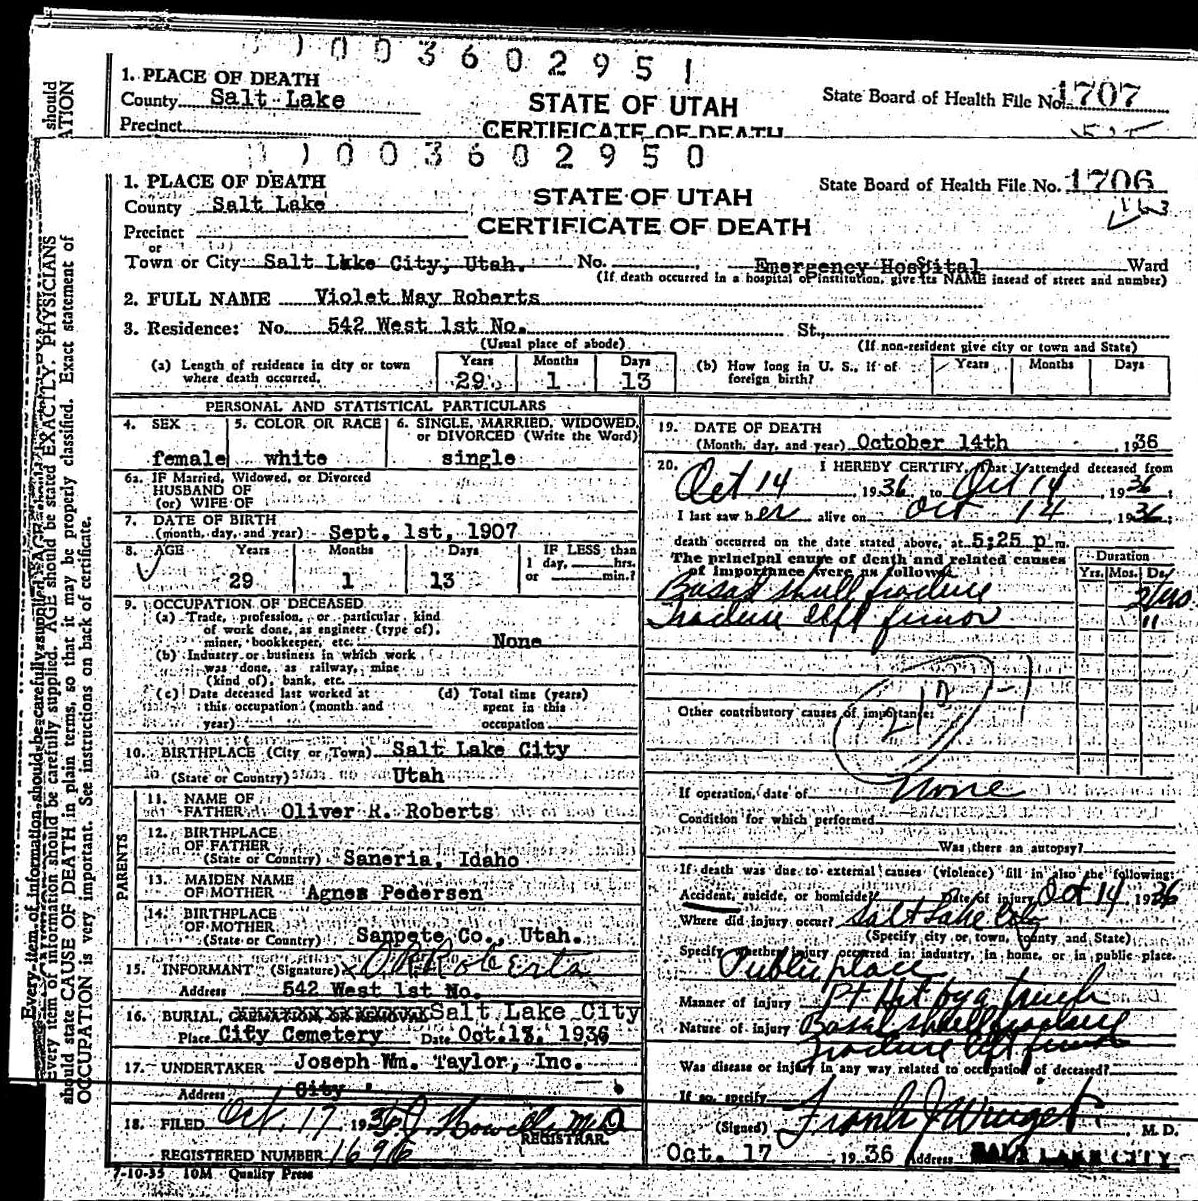 1003602951
1. PLACE OF DEATH
County Salt Lake
Precinct
STATE OF UTAH
CERTIFICATE OF DEATH
State Board of Health File No. 1707
should
ATION
1003602950
1. PLACE OF DEATH
County Salt Lake
Precinct
or
STATE OF UTAH
CERTIFICATE OF DEATH
State Board of Health File No. 1706
Town or City Salt Lake City, Utah. No. Emergency Hospital Ward
(If death occurred in a hospital or institution, give its NAME instead of street and number)
2. FULL NAME Violet May Roberts
3. Residence: No. 542 West 1st No. St.,
(Usual place of abode) (If non-resident give city or town and State)
(a) Length of residence in city or town where death occurred. Years 29 Months 1 Days 13
(b) How long in U. S., if of foreign birth? Years Months Days
PERSONAL AND STATISTICAL PARTICULARS
4. SEX female
5. COLOR OR RACE white
6. SINGLE, MARRIED, WIDOWED, or DIVORCED (Write the Word) single
6a. IF Married, Widowed, or Divorced
HUSBAND OF
(or) WIFE OF
7. DATE OF BIRTH
(month, day, and year) Sept. 1st, 1907
8. AGE Years 29 Months 1 Days 13 IF LESS than
1 day, hrs.
or min.?
9. OCCUPATION OF DECEASED
(a) Trade, profession, or particular kind
of work done, as engineer (type of),
miner, bookkeeper, etc. None
(b) Industry or business in which work
was done, as railway, mine
(kind of), bank, etc.
(c) Date deceased last worked at
this occupation (month and
year)
(d) Total time (years)
spent in this
occupation
10. BIRTHPLACE (City or Town) Salt Lake City
(State or Country) Utah
PARENTS
11. NAME OF
FATHER Oliver R. Roberts
12. BIRTHPLACE
OF FATHER
(State or Country) Saneria, Idaho
13. MAIDEN NAME
OF MOTHER Agnes Pedersen
14. BIRTHPLACE
OF MOTHER
(State or Country) Sanpete Co., Utah.
15. INFORMANT (Signature) x O.R.Roberts
Address 542 West 1st No.
16. BURIAL, Salt Lake City
Place City Cemetery Date Oct. 18. 1936
17. UNDERTAKER Joseph Wm. Taylor, Inc.
Address City
18. FILED Oct. 17 1936 Howells M.D
REGISTRAR.
REGISTERED NUMBER 1696
7-10-35 10M Quality Press
19. DATE OF DEATH
(Month, day, and year) October 14th 1936
20. I HEREBY CERTIFY, That I attended deceased from
Oct 14 1936 to Oct 14, 1936;
I last saw her alive on Oct 14, 1936;
death occurred on the date stated above, at 5;25 p m.
The principal cause of death and related causes
of importance were as follows:
Duration
Yrs. Mos. Ds.
Basal skull fracture
Fracture left femor "
Other contributory causes of importance:
If operation, date of None
Condition for which performed
Was there an autopsy?
If death was due to external causes (violence) fill in also the following:
Accident, suicide, or homicide? Date of injury Oct 14 1936
Where did injury occur? Salt Lake City
(Specify city or town, county and State)
Specify whether injury occurred in industry, in home, or in public place.
Public place
Manner of injury Pt Hit by a truck
Nature of injury Basal skull fracture
Fracture left femor
Was disease or injury in any way related to occupation of deceased?
If so, specify
(Signed) Frank J M. D.
Oct. 17 1936 Address SALT LAKE CITY
Every item of information should be carefully supplied. AGE should be stated EXACTLY. PHYSICIANS
should state CAUSE OF DEATH in plain terms, so that it may be properly classified. Exact statement of
OCCUPATION is very important. See instructions on back of certificate.